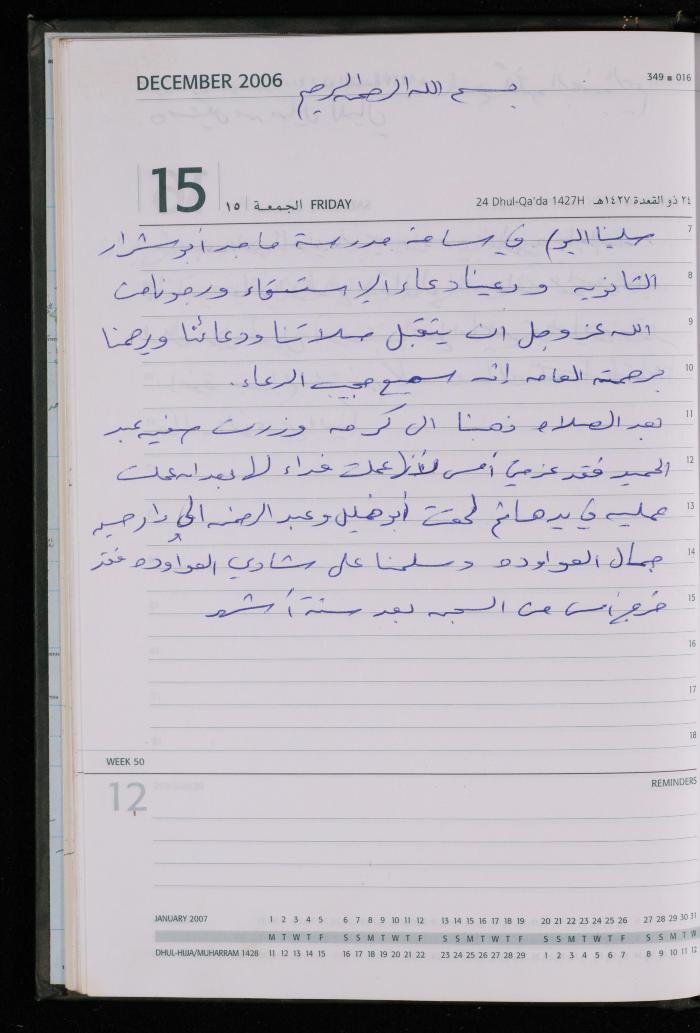 DECEMBER 2006
349 ■ 016
بسم الله الرحمن الرحيم
15 الجمعة ١٥ FRIDAY
24 Dhul-Qa'da 1427H ٢٤ ذو القعدة ١٤٢٧هـ
7
صلينا اليوم في ساحة مدرسة ماجد أبو شرار
8
الثانويه ودعينا دعاء الإستسقاء ورجونا من
9
الله عز وجل ان يتقبل صلاتنا ودعائنا ويرحمنا
10
برحمته العامه إنه سميع مجيب الدعاء.
11
بعد الصلاه ذهبنا الى كرمه وزرت صفيه عبد
12
الحميد فقد عزمتني أمس عملت غداء لا بعد ان عملت
13
عمليه في يدها ثم لحقت أبو خليل وعبد الرحمن الى دار حسين
14
جمال العواوده وسلمنا على شادي العواوده فقد
15
خرج أمس من السجن بعد سنة أشهر
16
17
18
WEEK 50
12
REMINDERS
JANUARY 2007 1 2 3 4 5 6 7 8 9 10 11 12 13 14 15 16 17 18 19 20 21 22 23 24 25 26 27 28 29 30 31
M T W T F S S M T W T F S S M T W T F S S M T W T F S S M T W
DHUL-HIJJA/MUHARRAM 1428 11 12 13 14 15 16 17 18 19 20 21 22 23 24 25 26 27 28 29 1 2 3 4 5 6 7 8 9 10 11 12